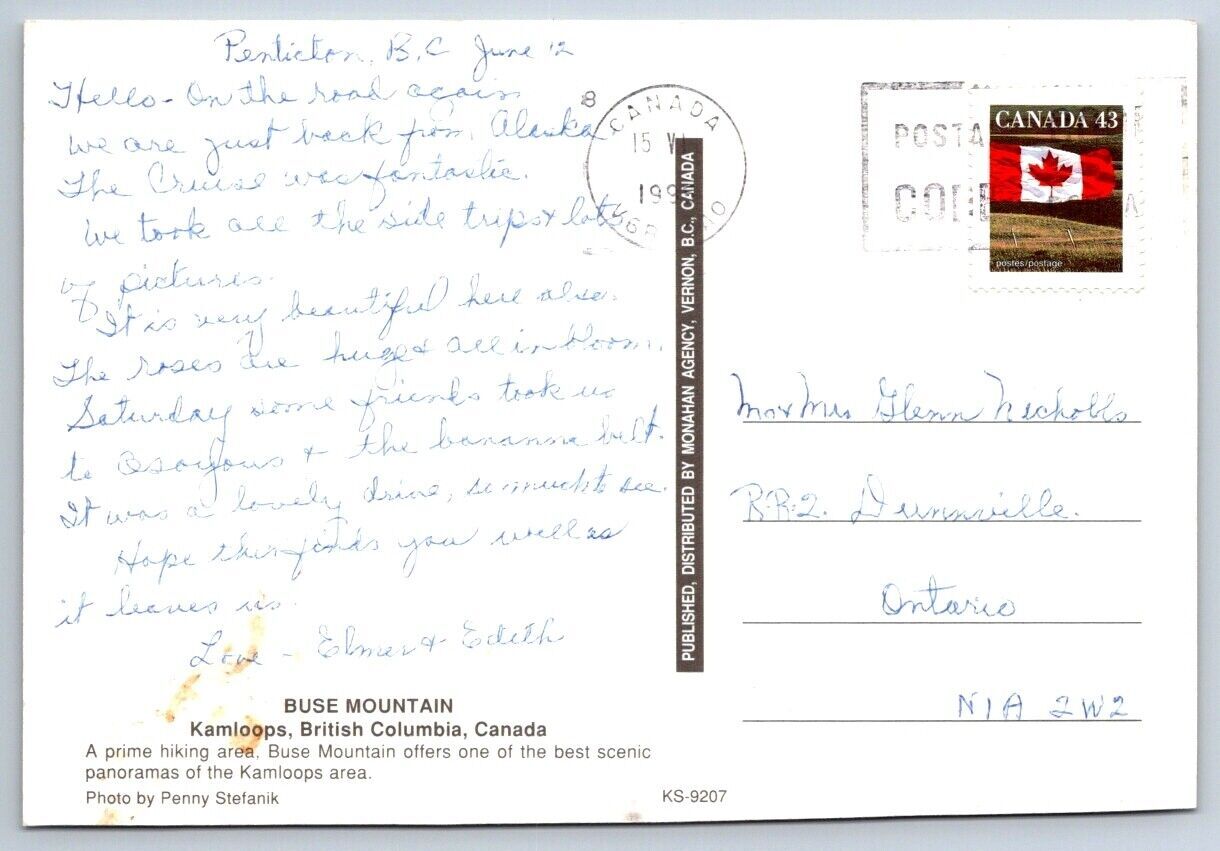 Penticton, B.C June 12
Hello - On the road again
we are just back from Alaska
The Cruise was fantastic.
We took all the side trips & lots
of pictures.
It is very beautiful here also.
The roses are huge & all in bloom.
Saturday some friends took us
to Osoyous & the bananna belt.
It was a lovely drive, so much to see.
Hope this finds you well as
it leaves us.
Love - Elmer & Edith
BUSE MOUNTAIN
Kamloops, British Columbia, Canada
A prime hiking area, Buse Mountain offers one of the best scenic
panoramas of the Kamloops area.
Photo by Penny Stefanik
KS-9207
PUBLISHED, DISTRIBUTED BY MONAHAN AGENCY, VERNON, B.C., CANADA
8
CANADA
15 V
199
POSTA
CO
CANADA 43
postes/postage
Mr & Mrs Glenn Nicholls
R.R.2. Dunnville.
Ontario
N1A 2W2